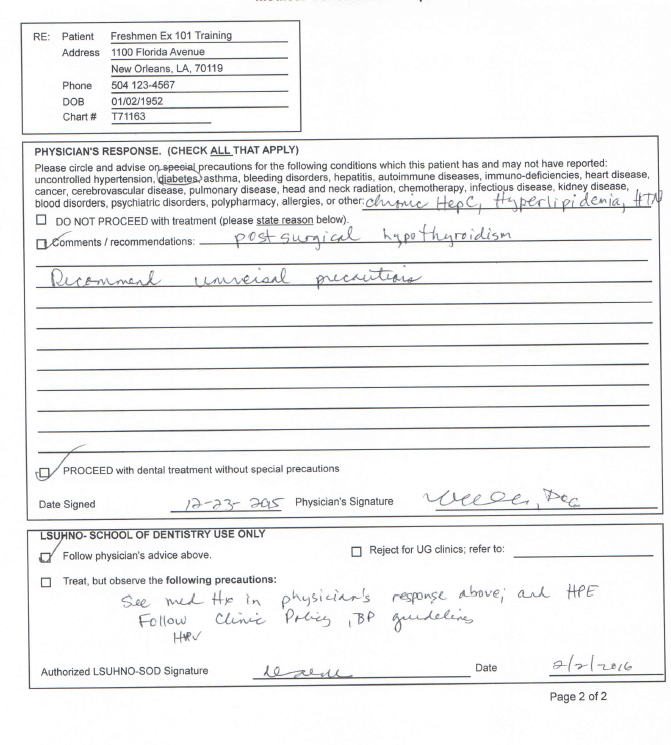 RE: Patient Freshmen Ex 101 Training
Address 1100 Florida Avenue
New Orleans, LA, 70119
Phone 504 123-4567
DOB 01/02/1952
Chart # T71163
PHYSICIAN'S RESPONSE. (CHECK ALL THAT APPLY)
Please circle and advise on special precautions for the following conditions which this patient has and may not have reported:
uncontrolled hypertension, diabetes, asthma, bleeding disorders, hepatitis, autoimmune diseases, immuno-deficiencies, heart disease,
cancer, cerebrovascular disease, pulmonary disease, head and neck radiation, chemotherapy, infectious disease, kidney disease,
blood disorders, psychiatric disorders, polypharmacy, allergies, or other: chronic HepC, Hyperlipidemia, HTN
DO NOT PROCEED with treatment (please state reason below).
Comments / recommendations: post surgical hypothyroidism
Recommend universal precautions
PROCEED with dental treatment without special precautions
Date Signed 12-23-2015 Physician's Signature
LSUHNO- SCHOOL OF DENTISTRY USE ONLY
Follow physician's advice above. Reject for UG clinics; refer to:
Treat, but observe the following precautions:
See med Hx in physician's response above; and HPE
Follow Clinic Policy, BP guidelines
Authorized LSUHNO-SOD Signature Date 2/2/2016
Page 2 of 2